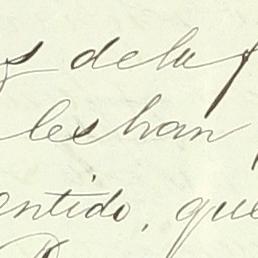 de la
les han
entido, que